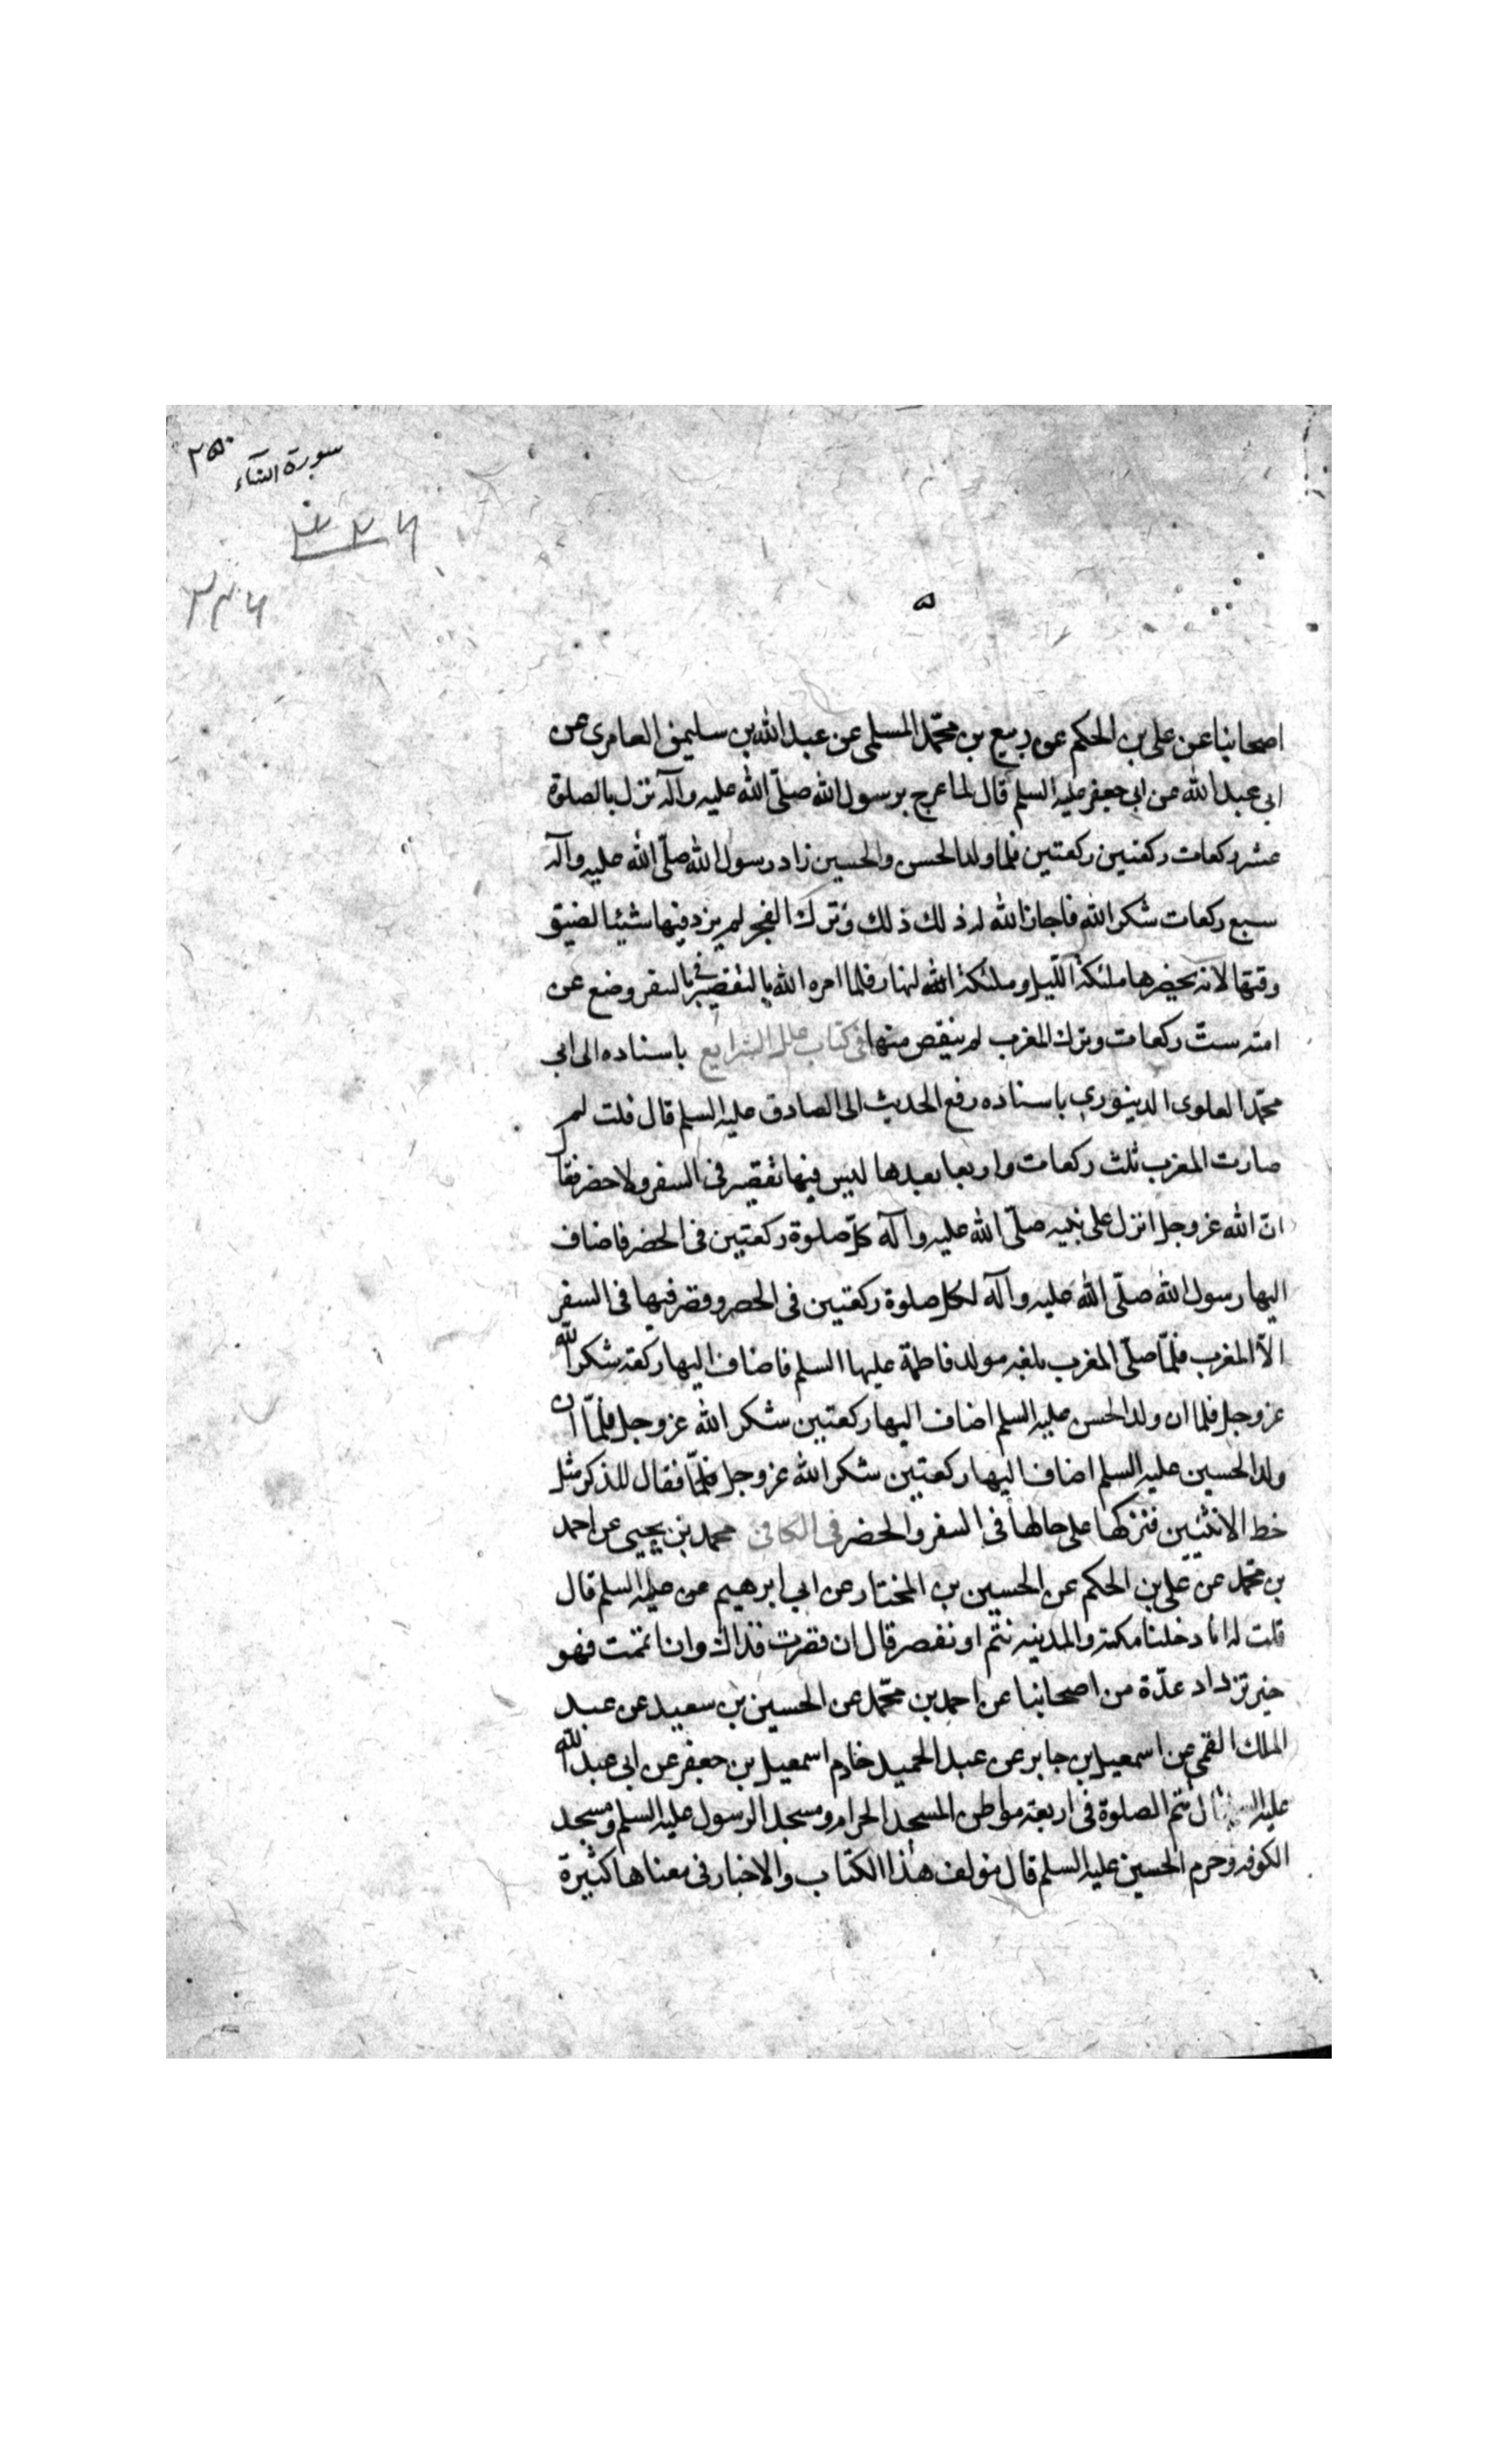 سورة النساء
٢٥٠
٣٢٦
٣٢٦
٥
اصحابنا عن على بن الحكم عن ربيع بن محمّد المسلمى عن عبد الله بن سليمن العامرى عن
ابى عبد الله عن ابى جعفر عليه السلم قال لما عرج برسول الله صلّى الله عليه وآله نزل بالصلوة
عشر ركعات ركعتين ركعتين فلما ولد الحسن والحسين زاد رسول الله صلّى الله عليه وآله
سبع ركعات شكر الله فاجاز الله له ذلك ذلك وترك الفجر لم يزد فيها شيئا لضيق
وقتها لانه يحضرها ملئكة اللّيل وملئكة النهار فلما امره الله بالتقصير فى السفر وضع عن
امته ستّ ركعات وترك المغرب لم ينقص منها فى كتاب علل الشرايع باسناده الى ابى
محمّد العلوى الدينورى باسناده رفع الحديث الى الصادق عليه السلم قال قلت لم
صارت المغرب ثلث ركعات واربعا بعدها ليس فيها تقصير فى السفر ولا حضر فقال
انّ الله عز وجل انزل على نبيه صلّى الله عليه وآله كلّ صلوة ركعتين فى الحضر فاضاف
اليها رسول الله صلّى الله عليه وآله لكل صلوة ركعتين فى الحضر وقصر فيها فى السفر
الاّ المغرب فلمّا صلّى المغرب بلغه مولد فاطمة عليها السلم فاضاف اليها ركعة شكر الله
عز وجل فلما ان ولد الحسن عليه السلم اضاف اليها ركعتين شكر الله عز وجل فلمّا ان
ولد الحسين عليه السلم اضاف اليها ركعتين شكر الله عز وجل فلمّا فقال للذكر مثل
حظ الانثيين فتركها على حالها فى السفر والحضر فى الكافى محمد بن يحيى عن احمد
بن محمّد عن على بن الحكم عن الحسين بن المختار عن ابى ابرهيم عن عليه السلم قال
قلت له انا دخلنا مكة والمدينه نتم او نقصر قال ان قصرت فذاك وان اتممت فهو
خير تزداد عدّة من اصحابنا عن احمد بن محمّد عن الحسين بن سعيد عن عبد
الملك القمى عن اسمعيل بن جابر عن عبد الحميد خادم اسمعيل بن جعفر عن ابى عبد الله
عليه السلم قال تتم الصلوة فى اربعة مواطن المسجد الحرام ومسجد الرسول عليه السلم ومسجد
الكوفه وحرم الحسين عليه السلم قال مؤلف هذا الكتاب والاخبار فى معناها كثيرة